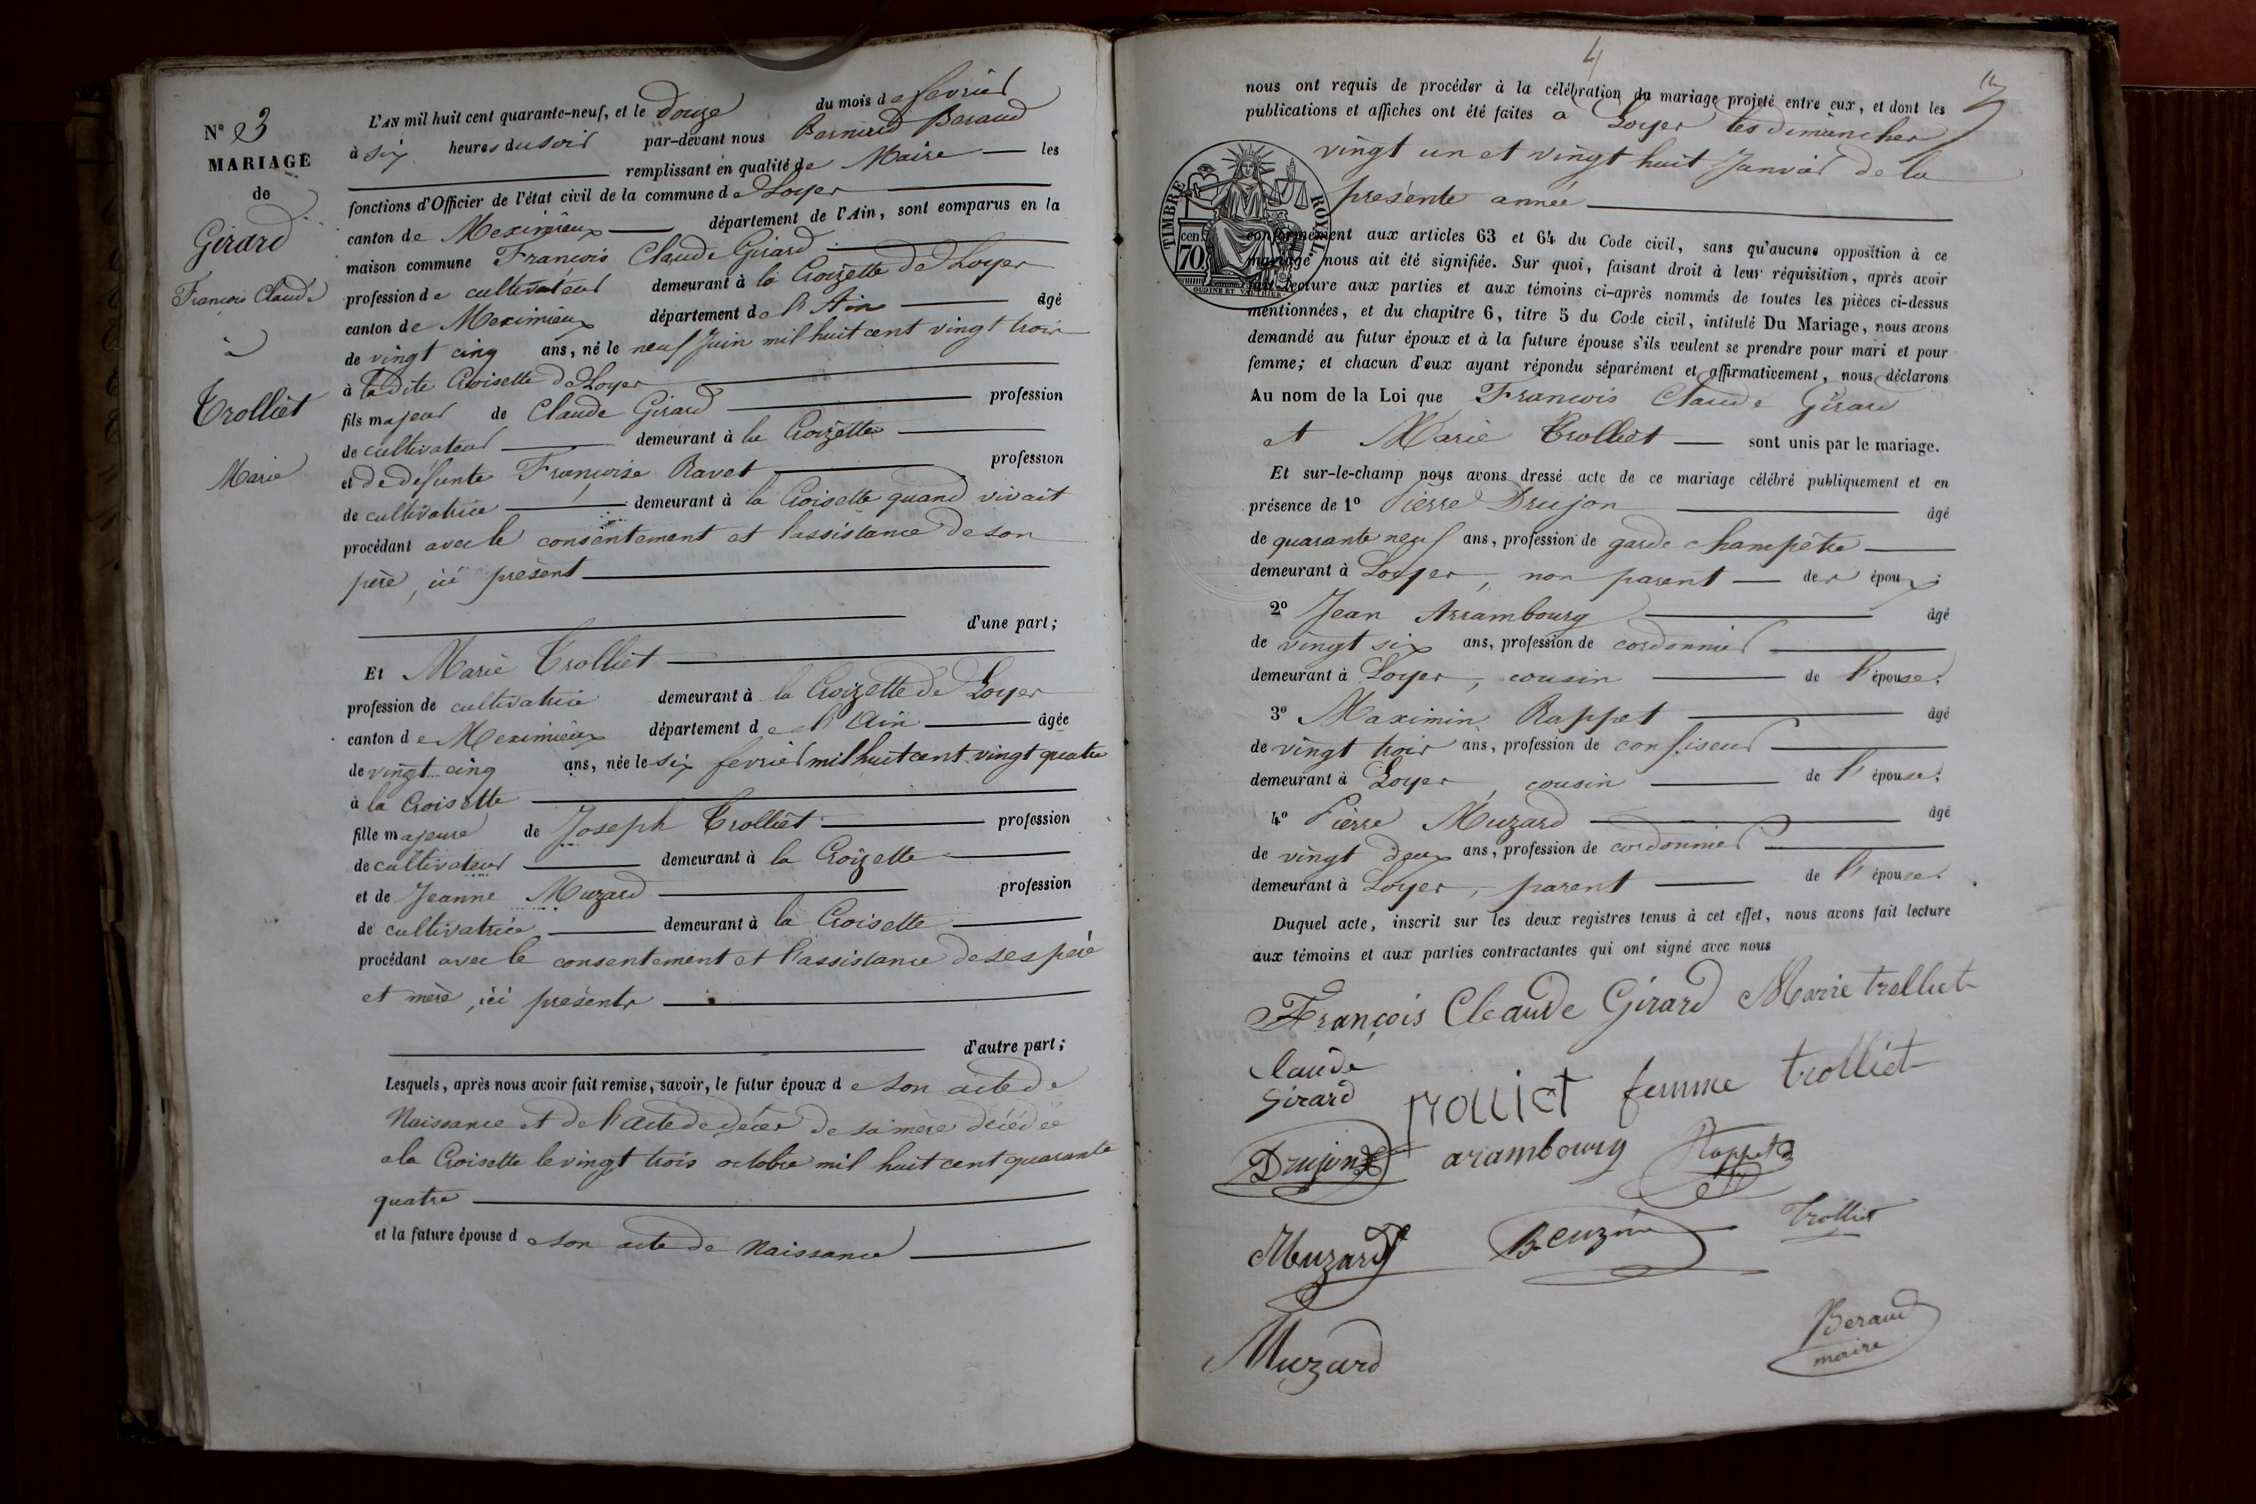 N° 3
MARIAGE
de
Girard
François Claude
à
Trolliet
Marie
L'AN mil huit cent quarante-neuf, et le douze du mois de fevrier
à six heures du soir par-devant nous Bernard Beraud
remplissant en qualité de Maire les
fonctions d'Officier de l'état civil de la commune de Loyer
canton de Meximieux département de l'Ain, sont comparus en la
maison commune François Claude Girard
profession de cultivateur demeurant à la Croizette de Loyer
canton de Meximieux département de l'Ain âgé
de vingt cinq ans, né le neuf Juin mil huit cent vingt trois
à ladite Croisette de Loyer
fils majeur de Claude Girard profession
de cultivateur demeurant à la Croizette
et de défunte Françoise Ravet profession
de cultivatrice demeurant à la Croisette quand vivait
procédant avec le consentement et l'assistance de son
père, ici présent
d'une part;
Et Marie Trolliet
profession de cultivatrice demeurant à la Croizette de Loyer
canton de Meximieux département de l'Ain âgée
de vingt cinq ans, née le six fevrier mil huit cent vingt quatre
à la Croisette
fille majeure de Joseph Trolliet profession
de cultivateur demeurant à la Croizette
et de Jeanne Muzard profession
de cultivatrice demeurant à la Croisette
procédant avec le consentement et l'assistance de ses père
et mère, ici présents
d'autre part;
Lesquels, après nous avoir fait remise, savoir, le futur époux de son acte de
Naissance et de l'acte de décès de sa mère décédée
a la Croisette le vingt trois octobre mil huit cent quarante
quatre
et la future épouse de son acte de Naissance
4
3
nous ont requis de procéder à la célébration du mariage projeté entre eux, et dont les
publications et affiches ont été faites a Loyer les dimanches
vingt un et vingt huit Janvier de la
présente année
TIMBRE ROYAL
70 cen.
OUDINE ET VAUTHIER
conformément aux articles 63 et 64 du Code civil, sans qu'aucune opposition à ce
mariage nous ait été signifiée. Sur quoi, faisant droit à leur réquisition, après avoir
fait lecture aux parties et aux témoins ci-après nommés de toutes les pièces ci-dessus
mentionnées, et du chapitre 6, titre 5 du Code civil, intitulé Du Mariage, nous avons
demandé au futur époux et à la future épouse s'ils veulent se prendre pour mari et pour
femme; et chacun d'eux ayant répondu séparément et affirmativement, nous déclarons
Au nom de la Loi que François Claude Girard
et Marie Trolliet sont unis par le mariage.
Et sur-le-champ nous avons dressé acte de ce mariage célébré publiquement et en
présence de 1° Pierre Drujon âgé
de quarante neuf ans, profession de garde champêtre
demeurant à Loyer, non parent des époux;
2° Jean Arrambourg âgé
de vingt six ans, profession de cordonnier
demeurant à Loyer, cousin de l'épouse;
3° Maximin Rappet âgé
de vingt trois ans, profession de confiseur
demeurant à Loyer, cousin de l'épouse;
4° Pierre Muzard âgé
de vingt deux ans, profession de cordonnier
demeurant à Loyer, parent de l'épouse.
Duquel acte, inscrit sur les deux registres tenus à cet effet, nous avons fait lecture
aux témoins et aux parties contractantes qui ont signé avec nous
François Claude Girard Marie trolliet
Claude
Girard trolliet femme trolliet
Drujon arambourg Rappet
Muzard Trolliet
Muzard
Beraud
maire